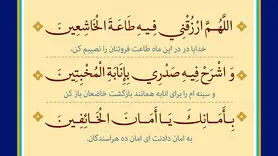 اللَّهُمَّ ارْزُقْنِي فِيهِ طَاعَةَ الْخَاشِعِينَ
خدایا در در این ماه طاعت فروتنان را نصیبم کن،
وَ اشْرَحْ فِيهِ صَدْرِي بِإِنَابَةِ الْمُخْبِتِينَ
و سینه ام را برای انابه همانند بازگشت خاضعان باز کن
بِأَمَانِكَ يَا أَمَانَ الْخَائِفِينَ
به امان دادنت ای امان ده هراسندگان.